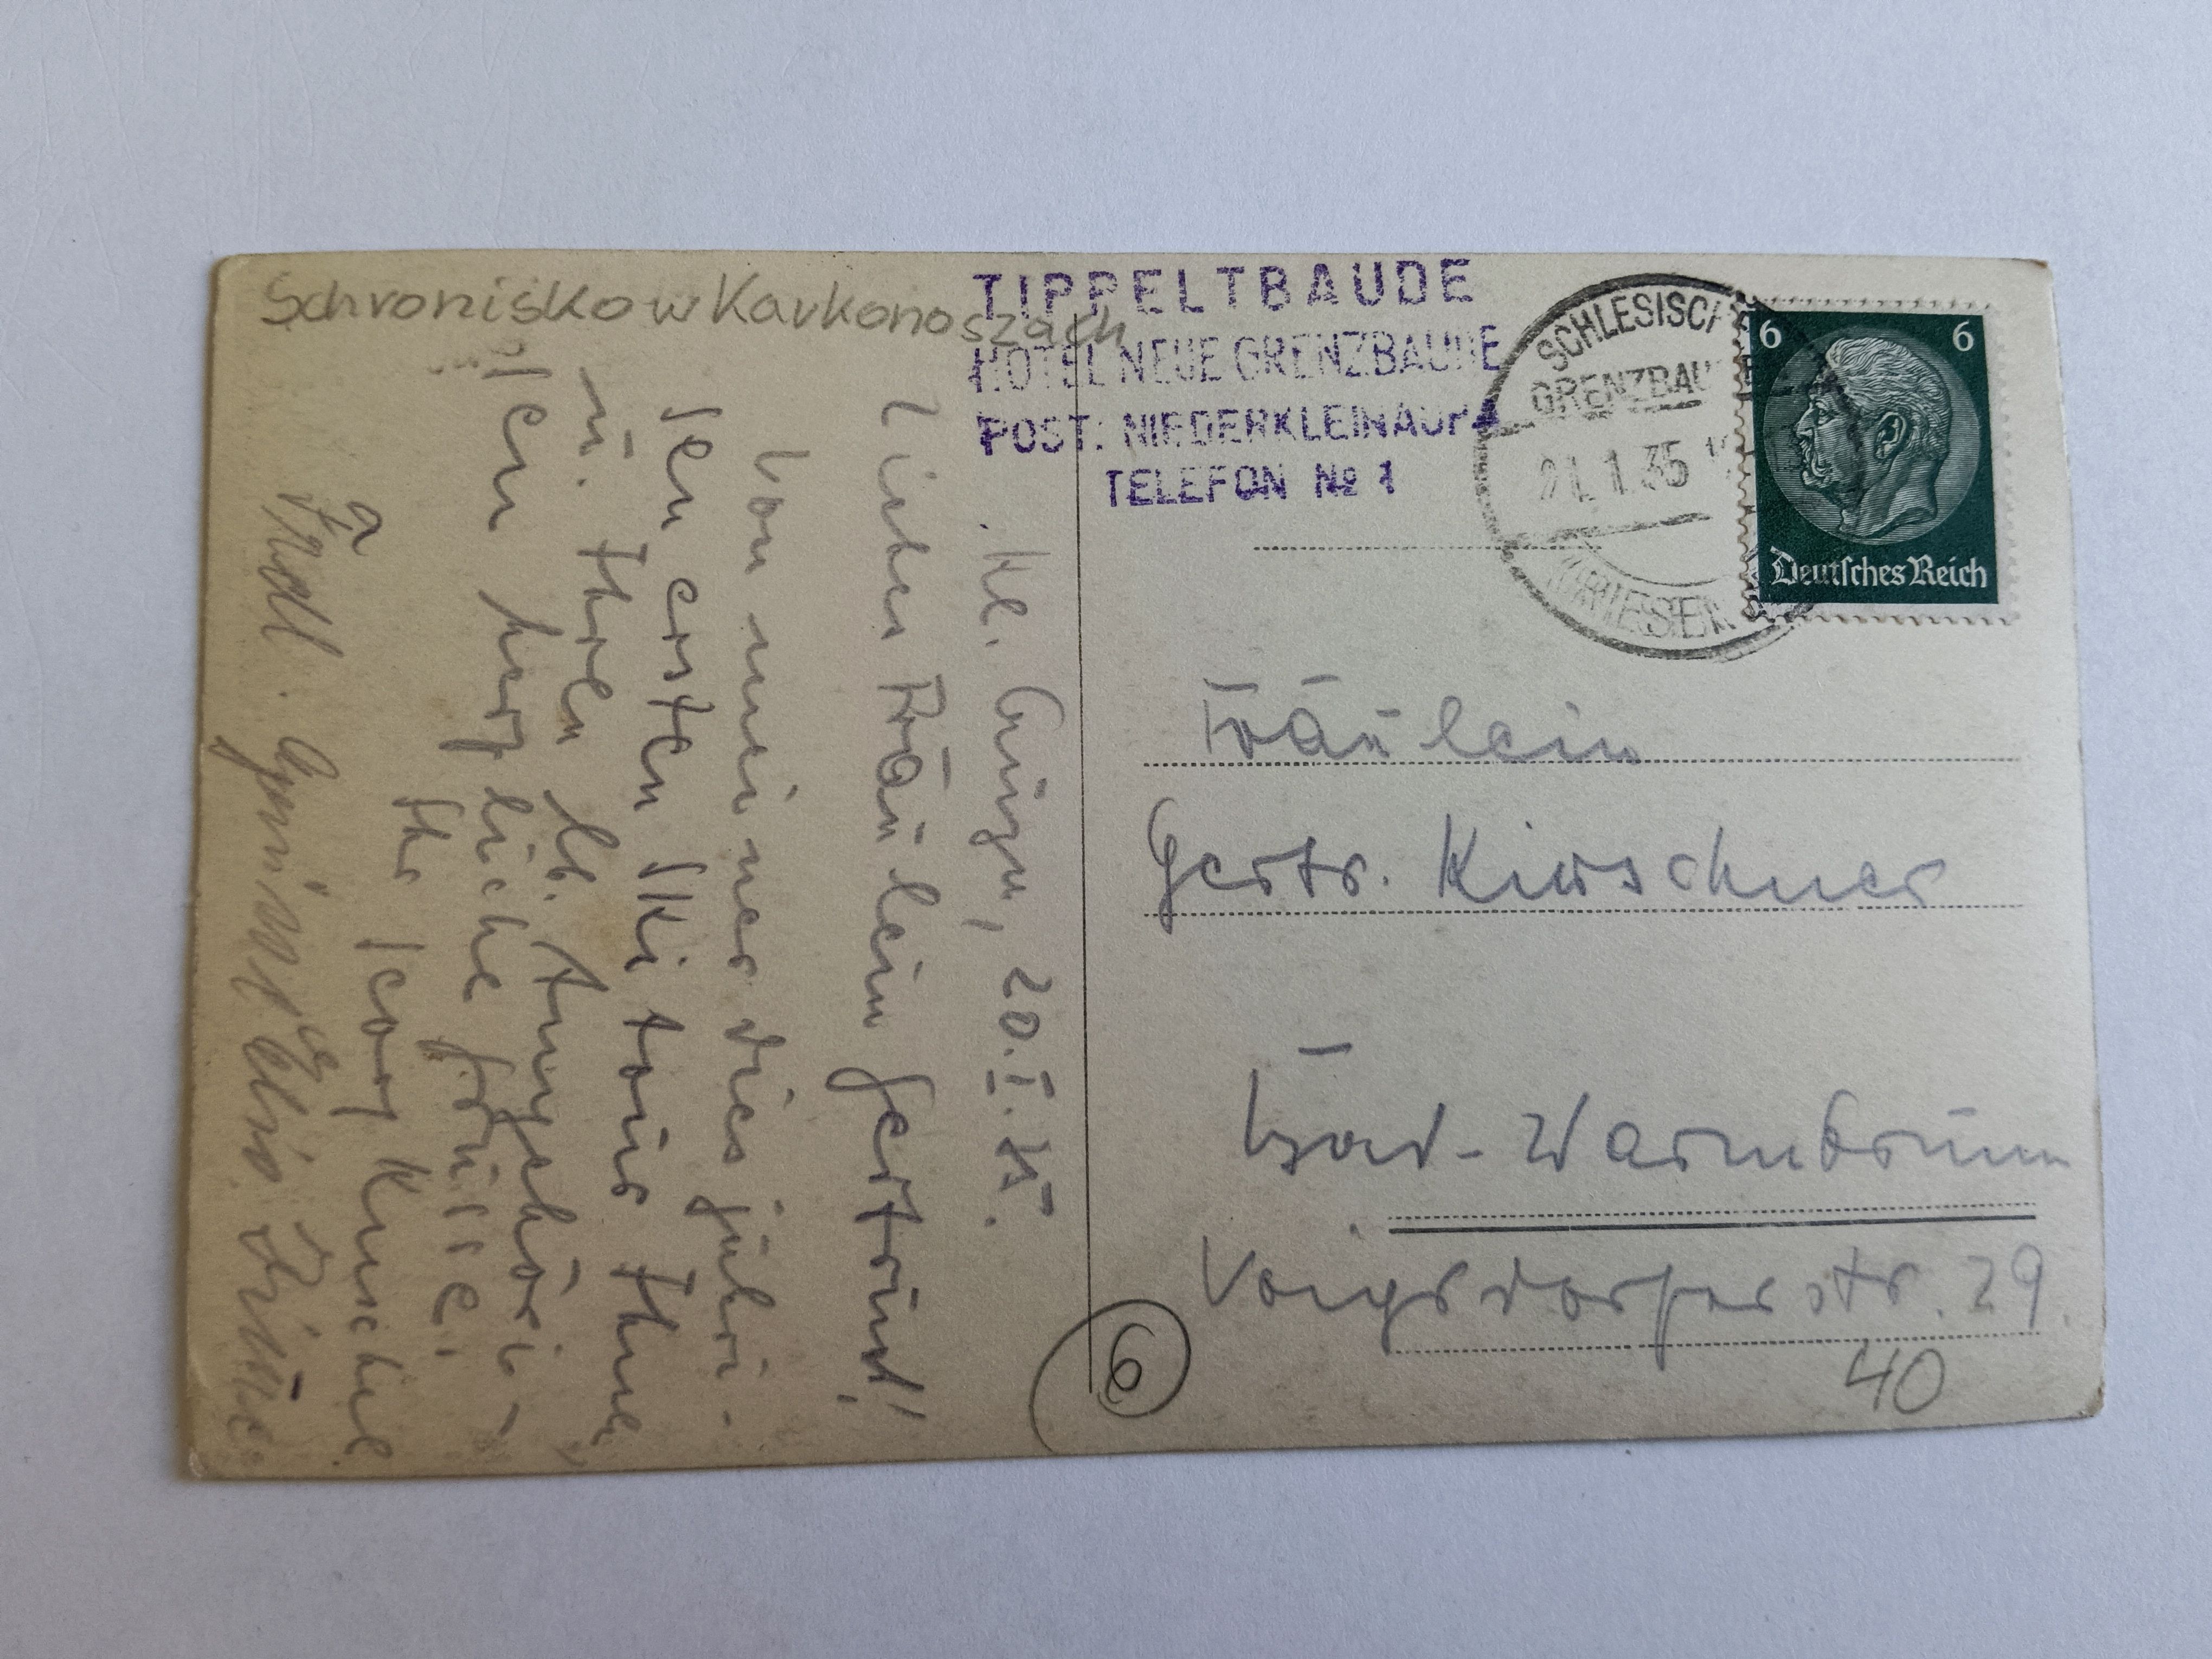 Schronisko w Karkonoszach
TIPPELTBAUDE
HOTEL NEUE GRENZBAUDE
POST: NIEDERKLEINAUPA
TELEFON № 1
SCHLESISCHE
GRENZBAUDE
21.1.35
(RIESEN
6 6
Deutsches Reich
Kl. Aupa, 20.I.35.
Liebes Fräulein Gertrud!
Von meiner diesjähri-
gen ersten Skitour Ihnen
u. Ihren lb. Angehöri-
gen herzliche Grüsse.
Ihr Georg
Frdl. Grüsse
Fräulein
Gertr. Kirschner
Bad-Warmbrunn
Voigtsdorferstr. 29.
40
6